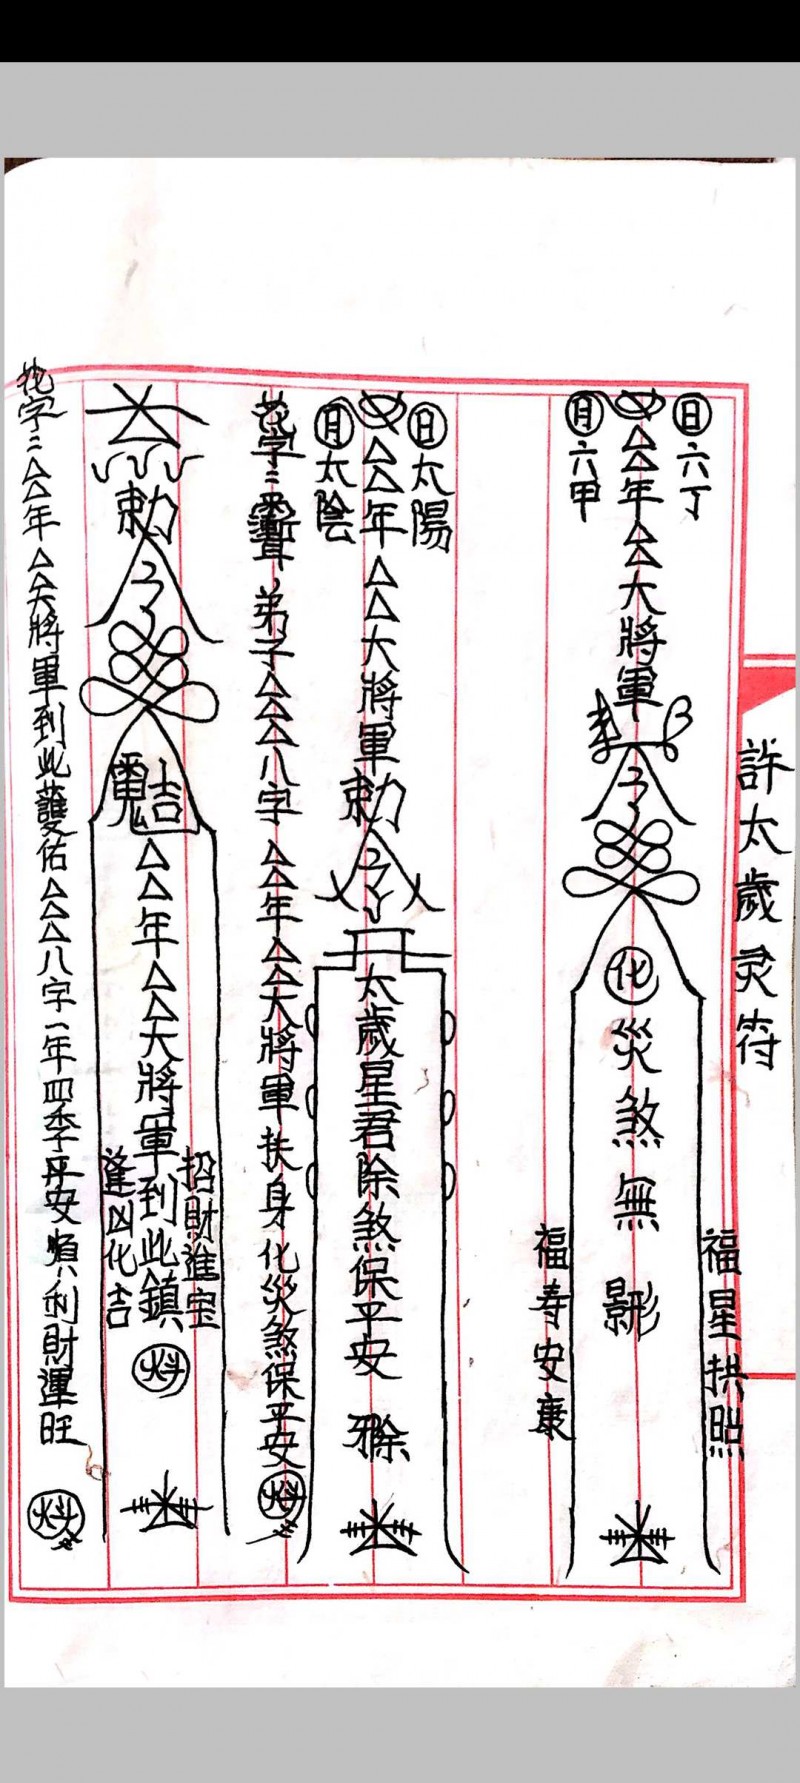 許太歲灵符
日 六丁
△△年△△大將軍
月 六甲
化災煞無影形
福星拱照
福寿安康
日 太陽
△△年△△大將軍勅
月 太陰
太歲星君除煞保平安
花字:弟子△△△八字△△年△△大將軍扶身化災煞保平安
勅
△△年△△大將軍到此鎮
招財進宝
逢凶化吉
花字:△△年△△大將軍到此護佑△△△八字一年四季平安順利財運旺